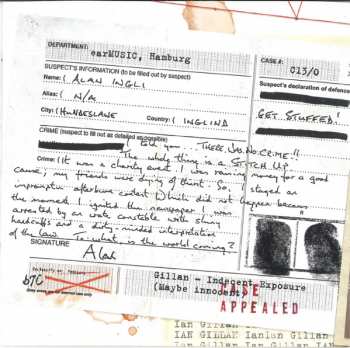 DEPARTMENT:
earMUSIC, Hamburg
SUSPECT'S INFORMATION (to be filled out by suspect)
Name: (ALAN INGLI
Alias: ( N/A
City: (HUNDESLANE Country: ( INGLIND
CASE #:
C13/0
Suspect's declaration of defence
GET STUFFED!
CRIME (suspect to fill out as detailed as possible)
I told you... THERE WAS NO CRIME!!
Crime: The whole thing is a STITCH UP
(It was a charity event I was raising money for a good
cause, my friends were dying of thirst. So, I staged an
impromptu afterhours contest which did not happen because
the moment I ignited the newspaper I was
arrested by an irate constable with shiny
handcuffs and a dirty-minded interpretation
of the law. To what is the world coming?
SIGNATURE
Alan
b7C
Gillan - Indecent Exposure
(Maybe innocent)
CASE
APPEALED
Ian Gillan
IAN GILLAN Ianian Gillan